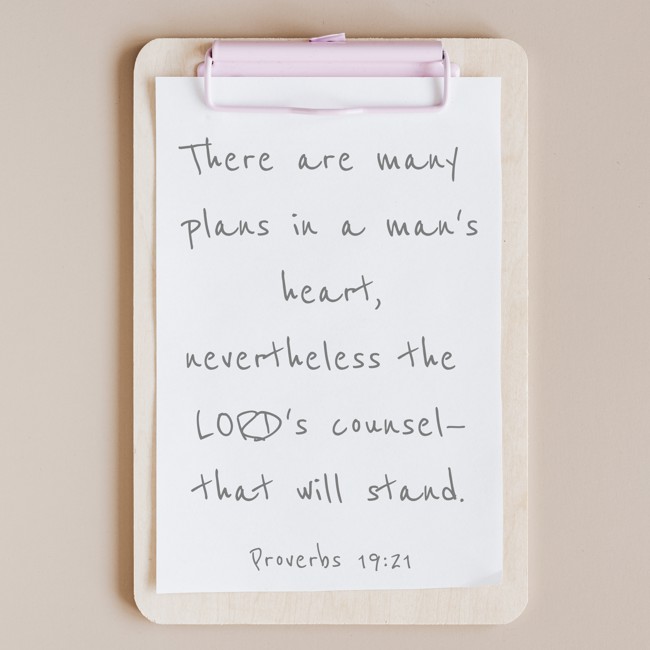 There are many
plans in a man's
heart,
nevertheless the
LORD's counsel—
that will stand.
Proverbs 19:21